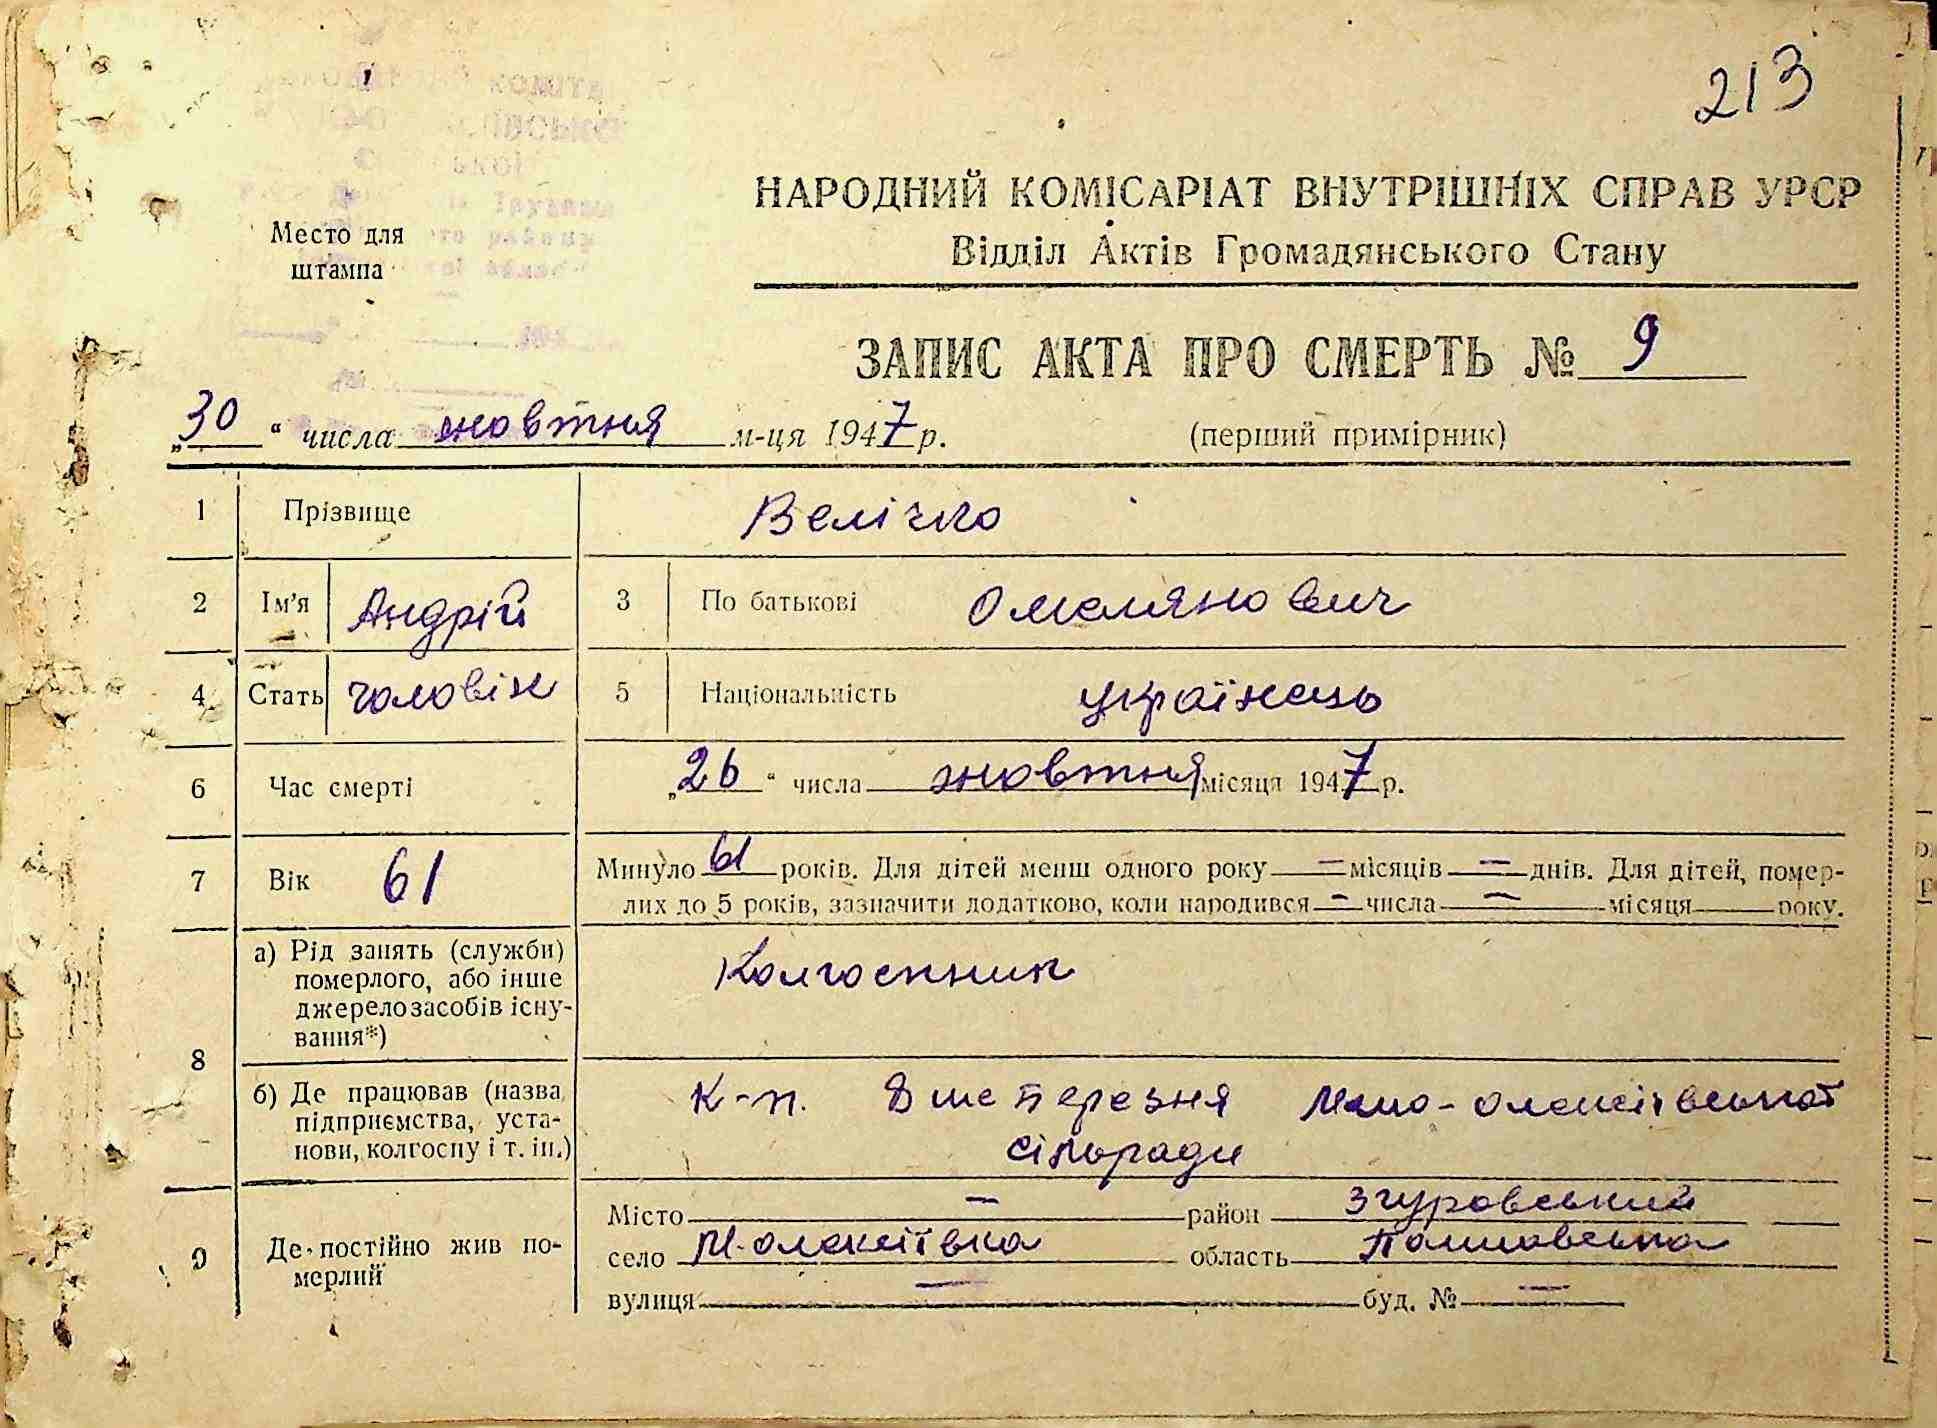 213
НАРОДНИЙ КОМІСАРІАТ ВНУТРІШНІХ СПРАВ УРСР
Відділ Актів Громадянського Стану
Место для
штампа
ЗАПИС АКТА ПРО СМЕРТЬ № 9
„30“ числа жовтня м-ця 1947 р.
(перший примірник)
1 Прізвище Велічко
2 Ім'я Андрій 3 По батькові Омелянович
4 Стать чоловік 5 Національність українець
6 Час смерті „26“ числа жовтня місяця 1947 р.
7 Вік 61 Минуло 61 років. Для дітей менш одного року — місяців — днів. Для дітей, помер-
лих до 5 років, зазначити додатково, коли народився — числа — місяця року.
8 а) Рід занять (служби)
померлого, або інше
джерело засобів існу-
вання*)
Колгоспник
б) Де працював (назва
підприємства, уста-
нови, колгоспу і т. ін.)
К-п. 8 ше березня Мало-олексіївської
сільради
9 Де постійно жив по-
мерлий
Місто — район Згуровський
село М-олексіївка область Полтавська
вулиця — буд. № —